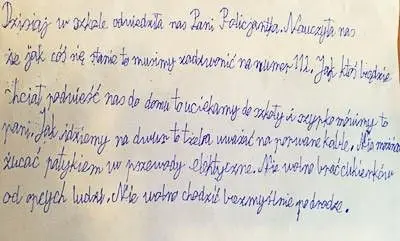 Dzisiaj w szkole odwiedziła nas Pani Policjantka. Nauczyła nas
że jak coś się stanie to musimy zadzwonić na numer 112. Jak ktoś będzie
chciał podwieść nas do domu to uciekamy do szkoły i szypko mówimy to
pani. Jak idziemy na dwur to trzeba uważać na porwane kable. Nie można
żucać patykiem w przewody elektryczne. Nie wolno brać cukierków
od opcych ludzi. Nie wolno chodzić bezmyślnie po drodze.